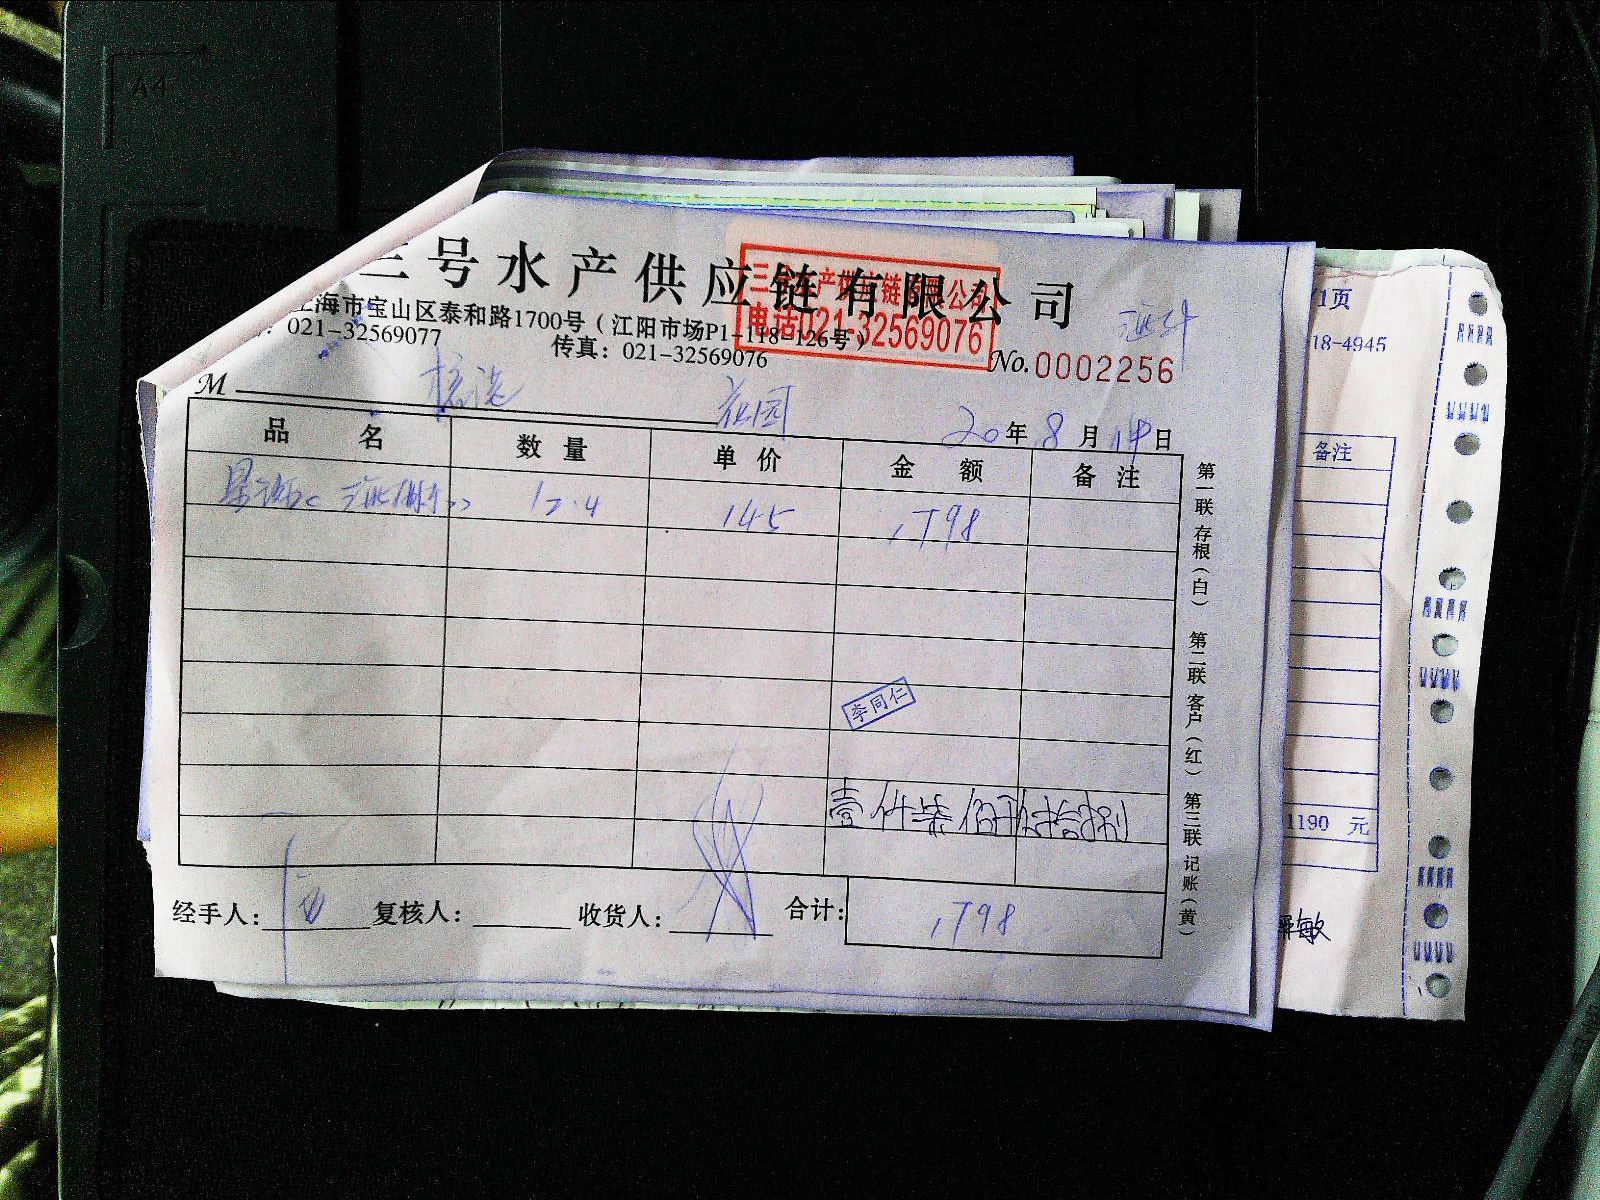 三号水产供应链有限公司
三号水产供应链有限公司
电话021-32569076
上海市宝山区泰和路1700号（江阳市场P1-118-126号）
021-32569077 传真：021-32569076
No.0002256
M
花园
20年8月14日
品名 数量 单价 金额 备注
12.4 145 1798
李同仁
壹仟柒佰玖拾捌
经手人： 复核人： 收货人： 合计： 1798
第一联存根（白） 第二联客户（红） 第三联记账（黄）
1页
18-4945
备注
1190 元
敏